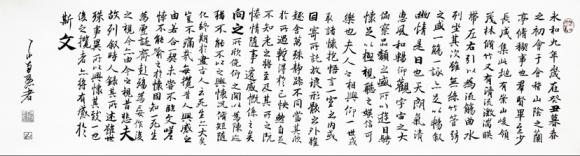 永和九年歲在癸丑暮春
之初會于會稽山陰之蘭
亭脩禊事也群賢畢至少
長咸集此地有崇山峻領
茂林脩竹又有清流激湍暎
帶左右引以為流觴曲水
列坐其次雖無絲竹管弦
之盛一觴一詠亦足以暢敘
幽情是日也天朗氣清
惠風和暢仰觀宇宙之大
俯察品類之盛所以遊目騁
懷足以極視聽之娛信可
樂也夫人之相與俯仰一世
或取諸懷抱悟言一室之內或
因寄所託放浪形骸之外雖
趣舍萬殊靜躁不同當其欣
於所遇暫得於己快然自足
不知老之將至及其所之既
惓情隨事遷感慨係之矣
向之所欣俛仰之間以為陳迹
猶不能不以之興懷況脩短隨
化終期於盡古人云死生亦大矣
豈不痛哉每攬昔人興感之
由若合一契未嘗不臨文嗟
悼不能喻之於懷固知一死生
為虛誕齊彭殤為妄作後
之視今由今之視昔悲夫
故列敘時人錄其所述雖世
殊事異所以興懷其致一也
後之攬者亦將有感於
斯文